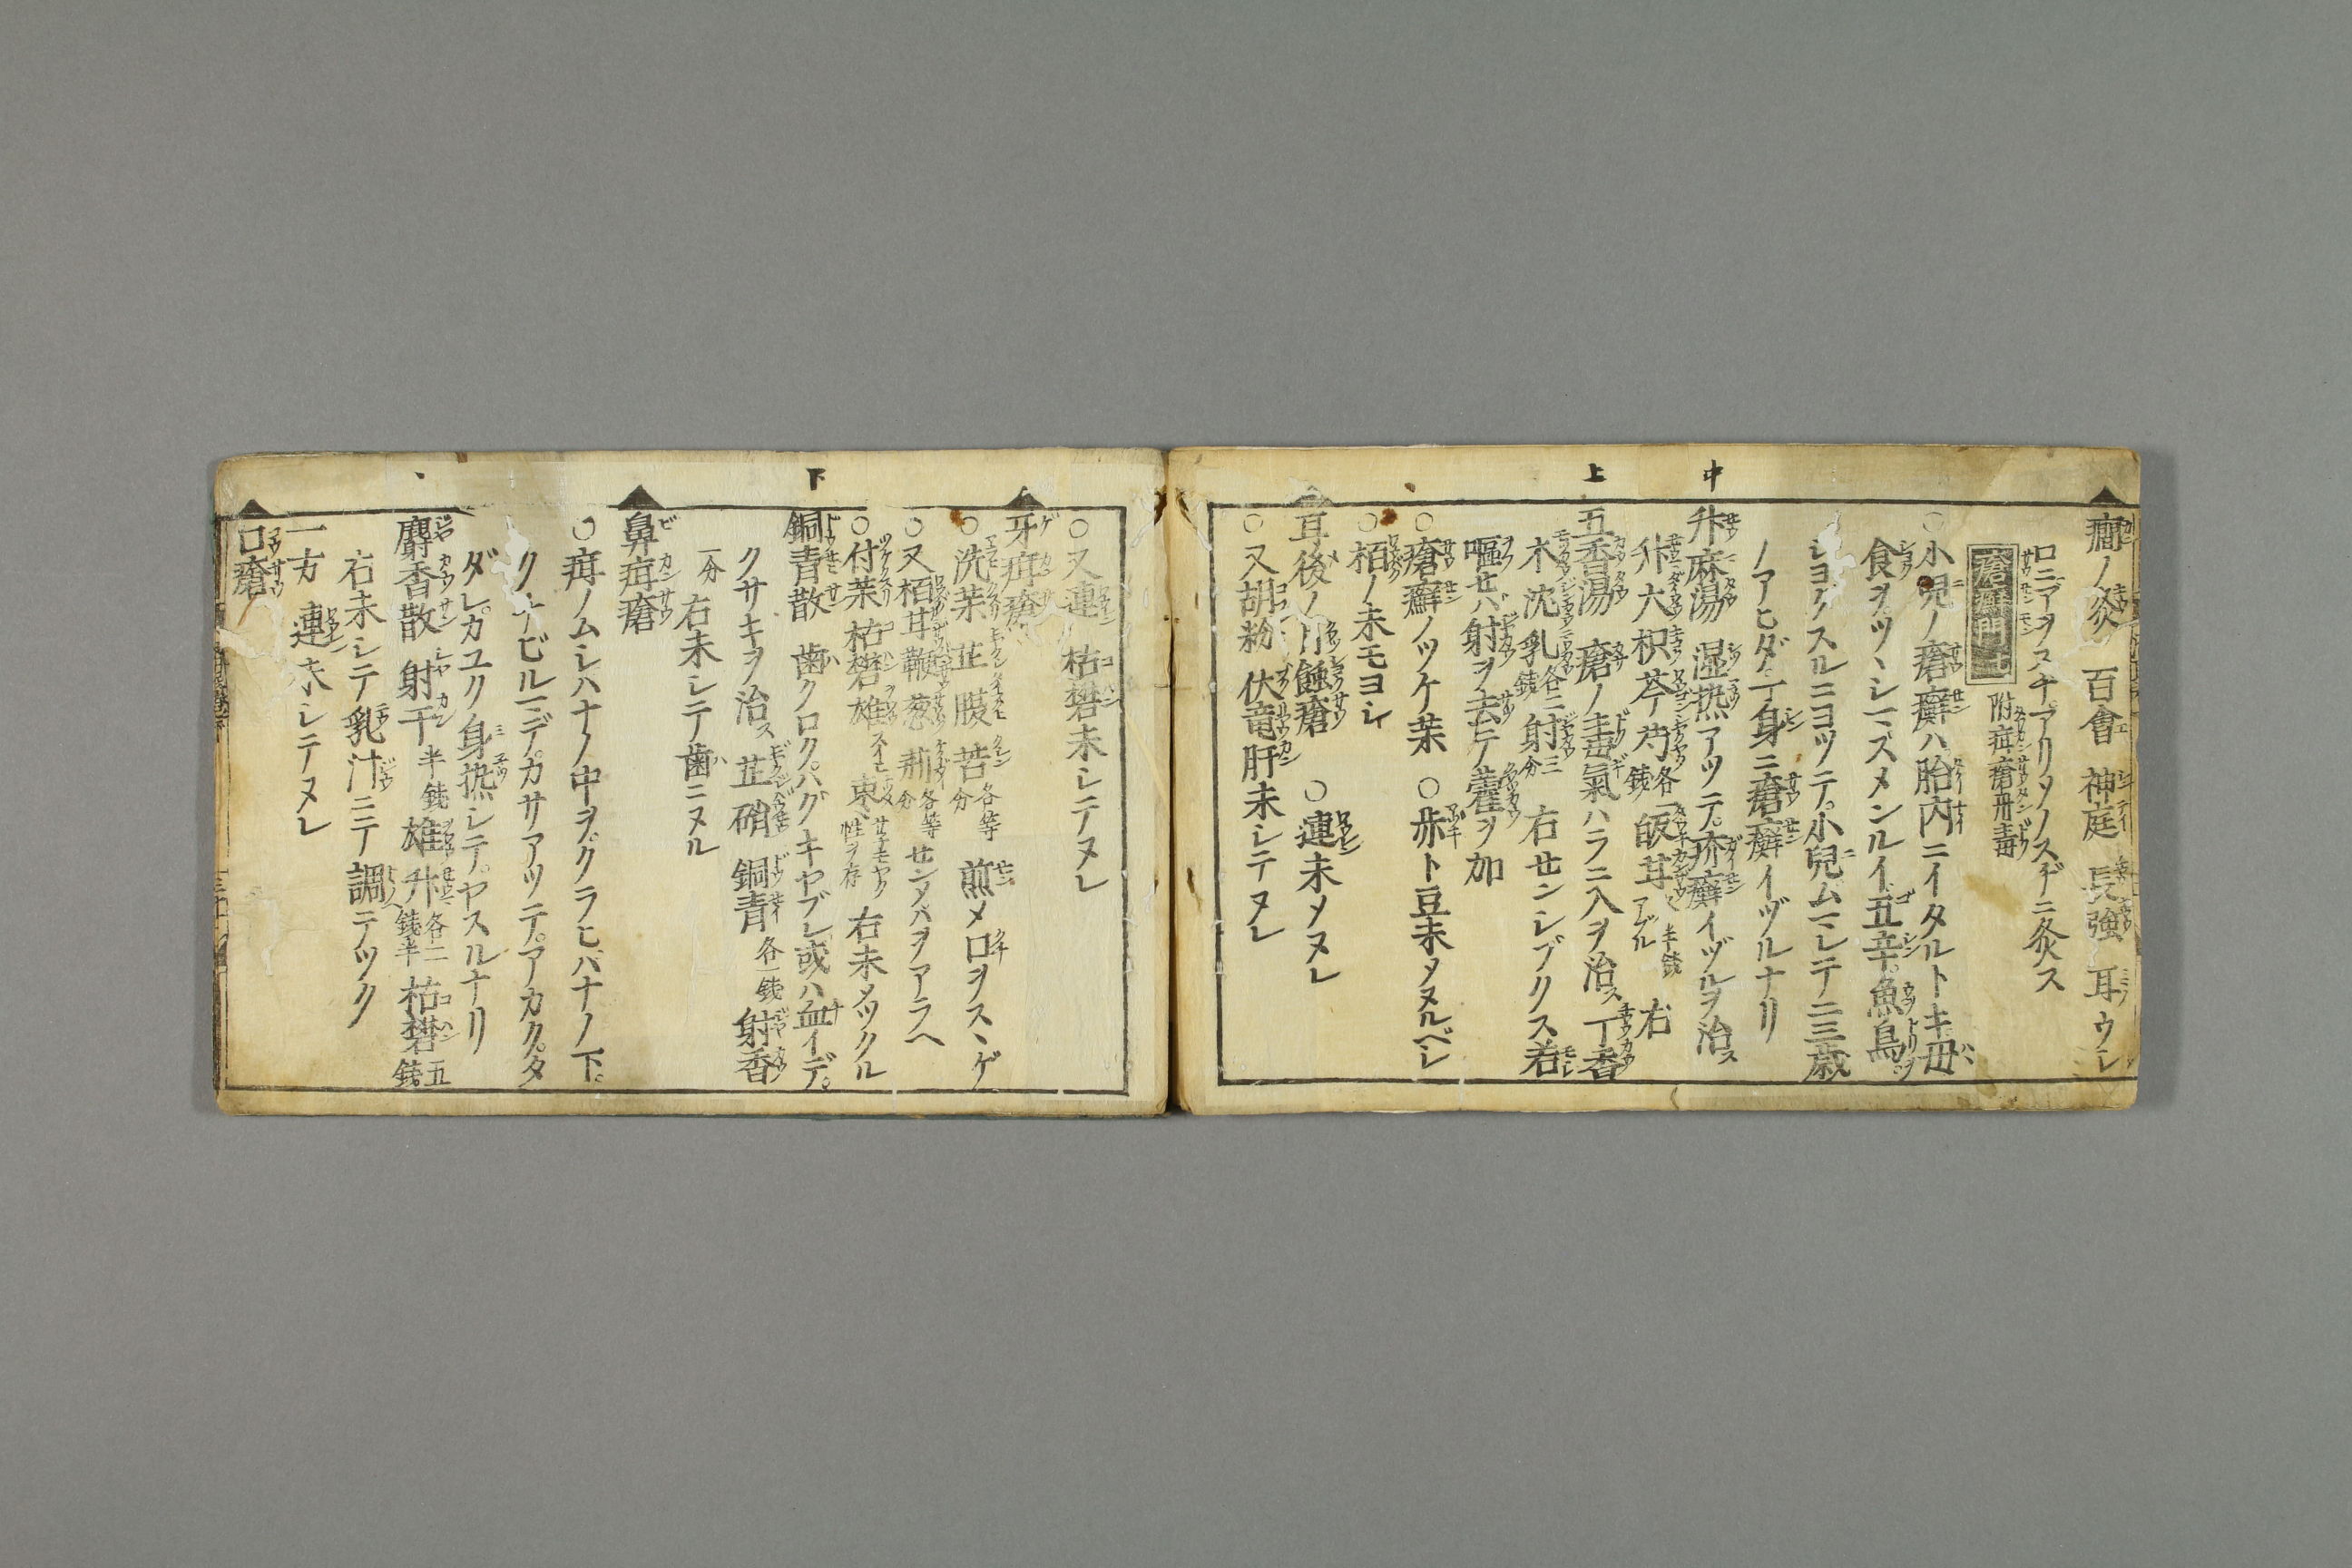 中
上
癇ノ灸 百會 神庭 長強 耳ウレ
ロニアヲスナアリソノスヂニ灸ス
瘡癬門 附疳瘡丹毒
○小児ノ瘡癬ハ胎内ニイタルトキ毋
食ヲツヽシマズメンルイ五辛魚鳥ヲ
ショクスルニヨツテ小兒ムマレテ二三歳
ノアヒダ一身ニ瘡癬イヅルナリ
升麻湯 湿热アツテ疥癬イヅルヲ治ス
升 六 枳 芩 芍 各一銭 皈 茸 アブル 半銭 右
五香湯 瘡ノ毒氣ハラニ入ヲ治ス 丁香
木 沈 乳 各二銭 射 三分 右せンレブクス若
嘔せバ射ヲ去テ藿ヲ加
○瘡癬ノツケ薬 ○赤ト豆末メヌルベシ
○栢ノ末モヨシ
耳後ノ月蝕瘡 ○連末メヌレ
○又胡粉 伏竜肝末シテヌレ
下
○又連 枯礬末レテヌレ
牙疳瘡
○洗薬 芷 腹 苦 各等分 煎メ口ヲスヽゲ
○又栢 茸 鞭 葱 荊 各等分 せンメハヲアラヘ
○付薬 枯礬 雄 棗 性ヲ存 右末メツクル
銅青散 歯クロクハグキヤブレ或ハ血イデ
クサキヲ治ス 芷 硝 銅青 各一銭 射香
一分 右末シテ歯ニヌル
鼻疳瘡
○疳ノムシハナノ中ヲクラヒハナノ下
クチビルマデカサアツテアカクタ
ダレカユク身热シテヤスルナリ
麝香散 射干 半銭 雄 升 各二銭半 枯礬 五銭
右末シテ乳汁ニテ調テツク
一方 連末シテヌレ
口瘡